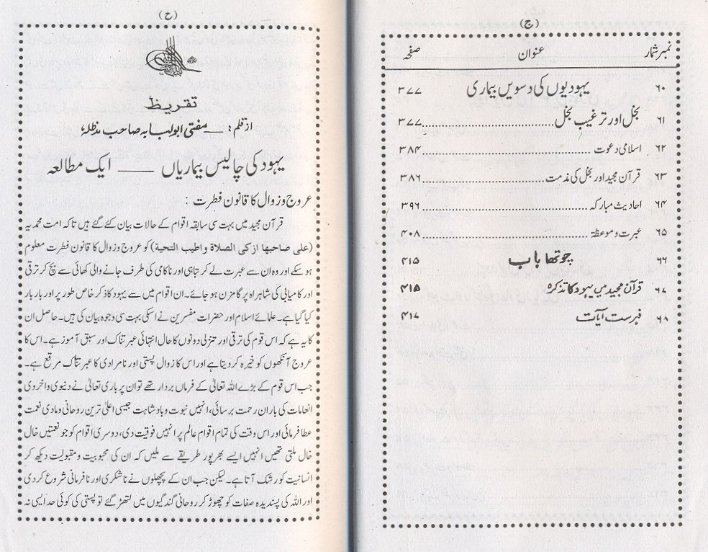 (ج)
نمبر شمار عنوان صفحہ
۶۰ یہودیوں کی دسویں بیماری ۳۷۷
۶۱ بخل اور ترغیبِ بخل ۳۷۷
۶۲ اسلامی دعوت ۳۸۴
۶۳ قرآن مجید اور بخل کی مذمت ۳۸۶
۶۴ احادیث مبارکہ ۳۹۶
۶۵ عبرت و موعظۃ ۴۰۸
۶۶ چوتھا باب ۴۱۵
۶۷ قرآن مجید میں یہود کا تذکرہ ۴۱۵
۶۸ فہرست آیات ۴۱۷
(ح)
تقریظ
از قلم: مفتی ابولبابہ صاحب مدظلہ
یہود کی چالیس بیماریاں ــــ ایک مطالعہ
عروج و زوال کا قانونِ فطرت :
قرآن مجید میں بہت سی سابقہ اقوام کے حالات بیان کئے گئے ہیں تاکہ امت محمدیہ
(علی صاحبها ازکی الصلاة واطیب التحیة) کو عروج و زوال کا قانون فطرت معلوم
ہو سکے اور وہ ان سے عبرت لے کر تباہی اور ناکامی کی طرف جانے والی کھائی سے بچ کر ترقی
اور کامیابی کی شاہراہ پر گامزن ہو جائے۔ ان اقوام میں سے یہود کا ذکر خاص طور پر اور بار بار
کیا گیا ہے۔ علمائے اسلام اور حضرات مفسرین نے اسکی بہت سی وجوہ بیان کی ہیں۔ حاصل ان
کا یہ ہے کہ اس قوم کی ترقی اور تنزلی دونوں کا حال انتہائی عبرتناک اور سبق آموز ہے۔ اس کا
عروج آنکھوں کو خیرہ کر دیتا ہے اور اس کا زوال پستی اور نامرادی کا عبرتناک مرقع ہے۔
جب اس قوم کے بڑے اللہ تعالیٰ کے فرماں بردار تھے تو ان پر باری تعالیٰ نے دنیوی و اخروی
انعامات کی باران رحمت برسائی، انہیں نبوت و بادشاہت جیسی اعلیٰ ترین روحانی و مادی نعمت
عطا فرمائی اور اس وقت کی تمام اقوام عالم پر انہیں فوقیت دی، دوسری اقوام کو جو نعمتیں خال
خال ملتی تھیں انہیں ایسے بھر پور طریقے سے ملیں کہ ان کی محبوبیت و مقبولیت دیکھ کر
انسانیت کو رشک آتا ہے۔ لیکن جب ان کے پچھلوں نے ناشکری اور نافرمانی شروع کر دی
اور اللہ کی پسندیدہ صفات کو چھوڑ کر روحانی گندگیوں میں لتھڑ گئے تو پستی کی کوئی حد ایسی نہ